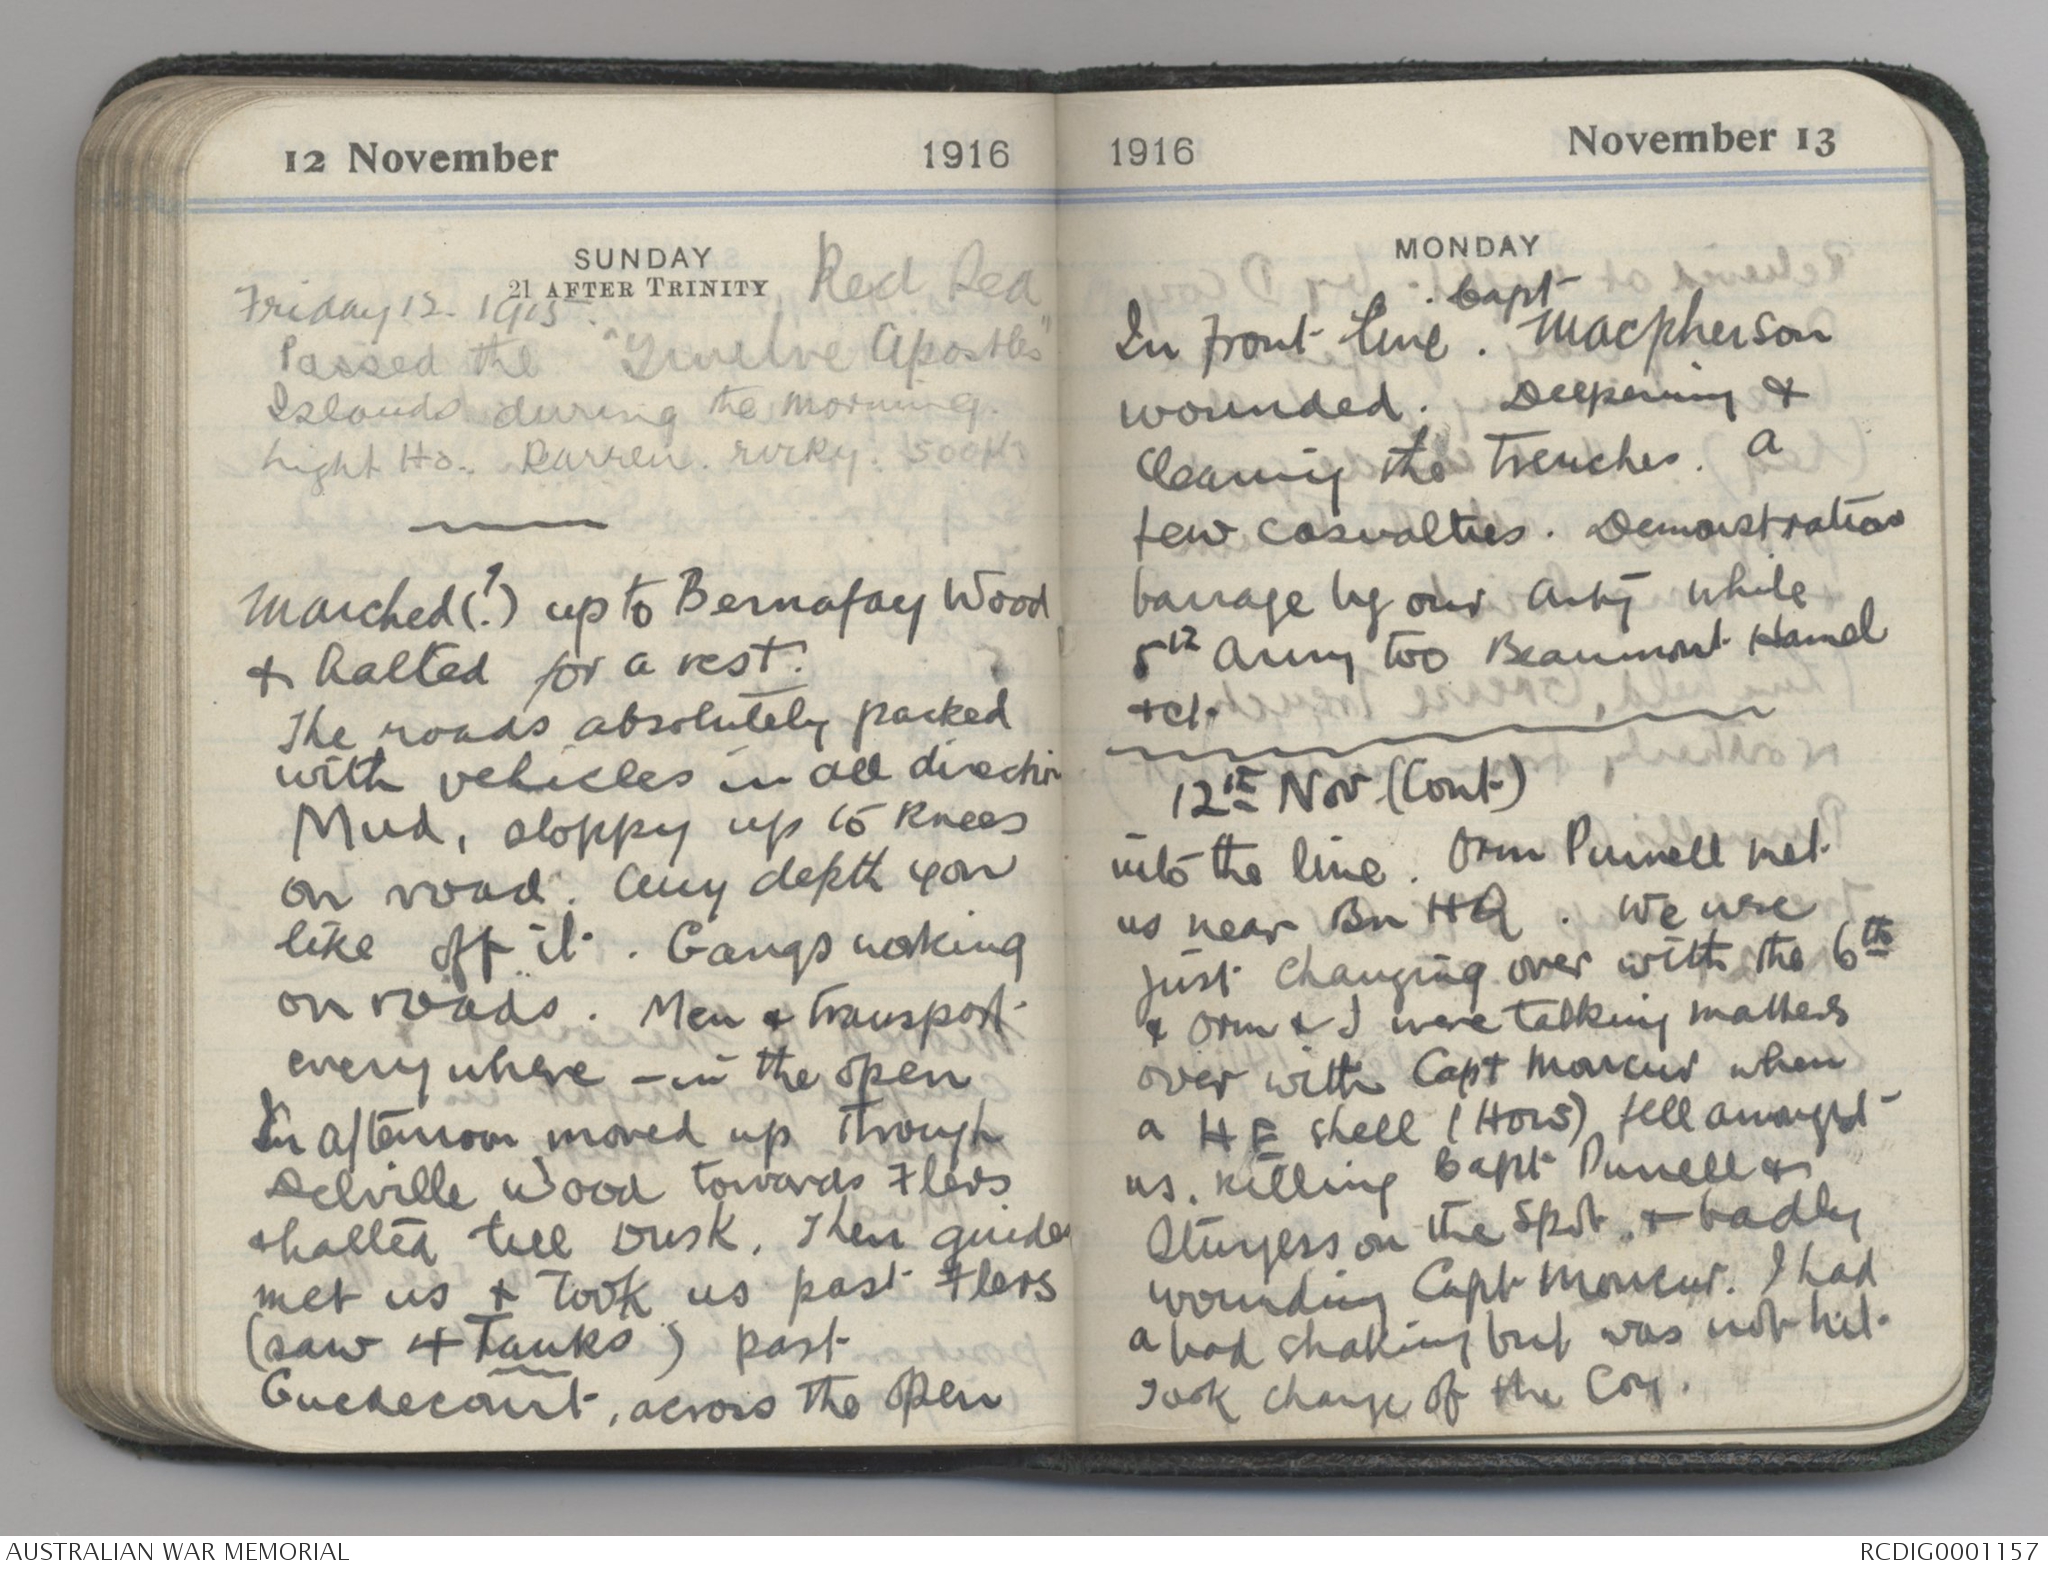 12 November 1916
SUNDAY
21 AFTER TRINITY Red Sea
Friday 12. 1915.
Passed the "Twelve Apostles"
Islands during the morning.
Light Ho. Barren. rocky. 500ft
Marched(?) up to Bernafay Wood
& halted for a rest.
The roads absolutely packed
with vehicles in all direction
Mud, sloppy up to knees
on road. Any depth you
like off it. Gangs working
on roads. Men & transport
everywhere - in the open
In afternoon moved up through
Delville Wood towards Flers
& halted till Dusk. Then guides
met us & took us past Flers
(saw 4 Tanks) past
Guedecourt, across the open
1916 November 13
MONDAY
Capt
In front line. Macpherson
wounded. Deepening &
cleaning the trenches. A
few casualties. Demonstration
barrage by our Arty while
5th Army too Beaumont Hamel
&ct.
12th Nov (Cont)
into the line. Orm Purnell met
us near Bn HQ. We were
just changing over with the 6th
& Orm & I were talking matters
over with Capt Moncur when
a HE shell (How) fell amongst
us. killing Capt Punell &
Sturgess on the spot. & badly
wounding Capt Moncur. I had
a bad shaking but was not hit.
Took charge of the Coy.
AUSTRALIAN WAR MEMORIAL
RCDIG0001157